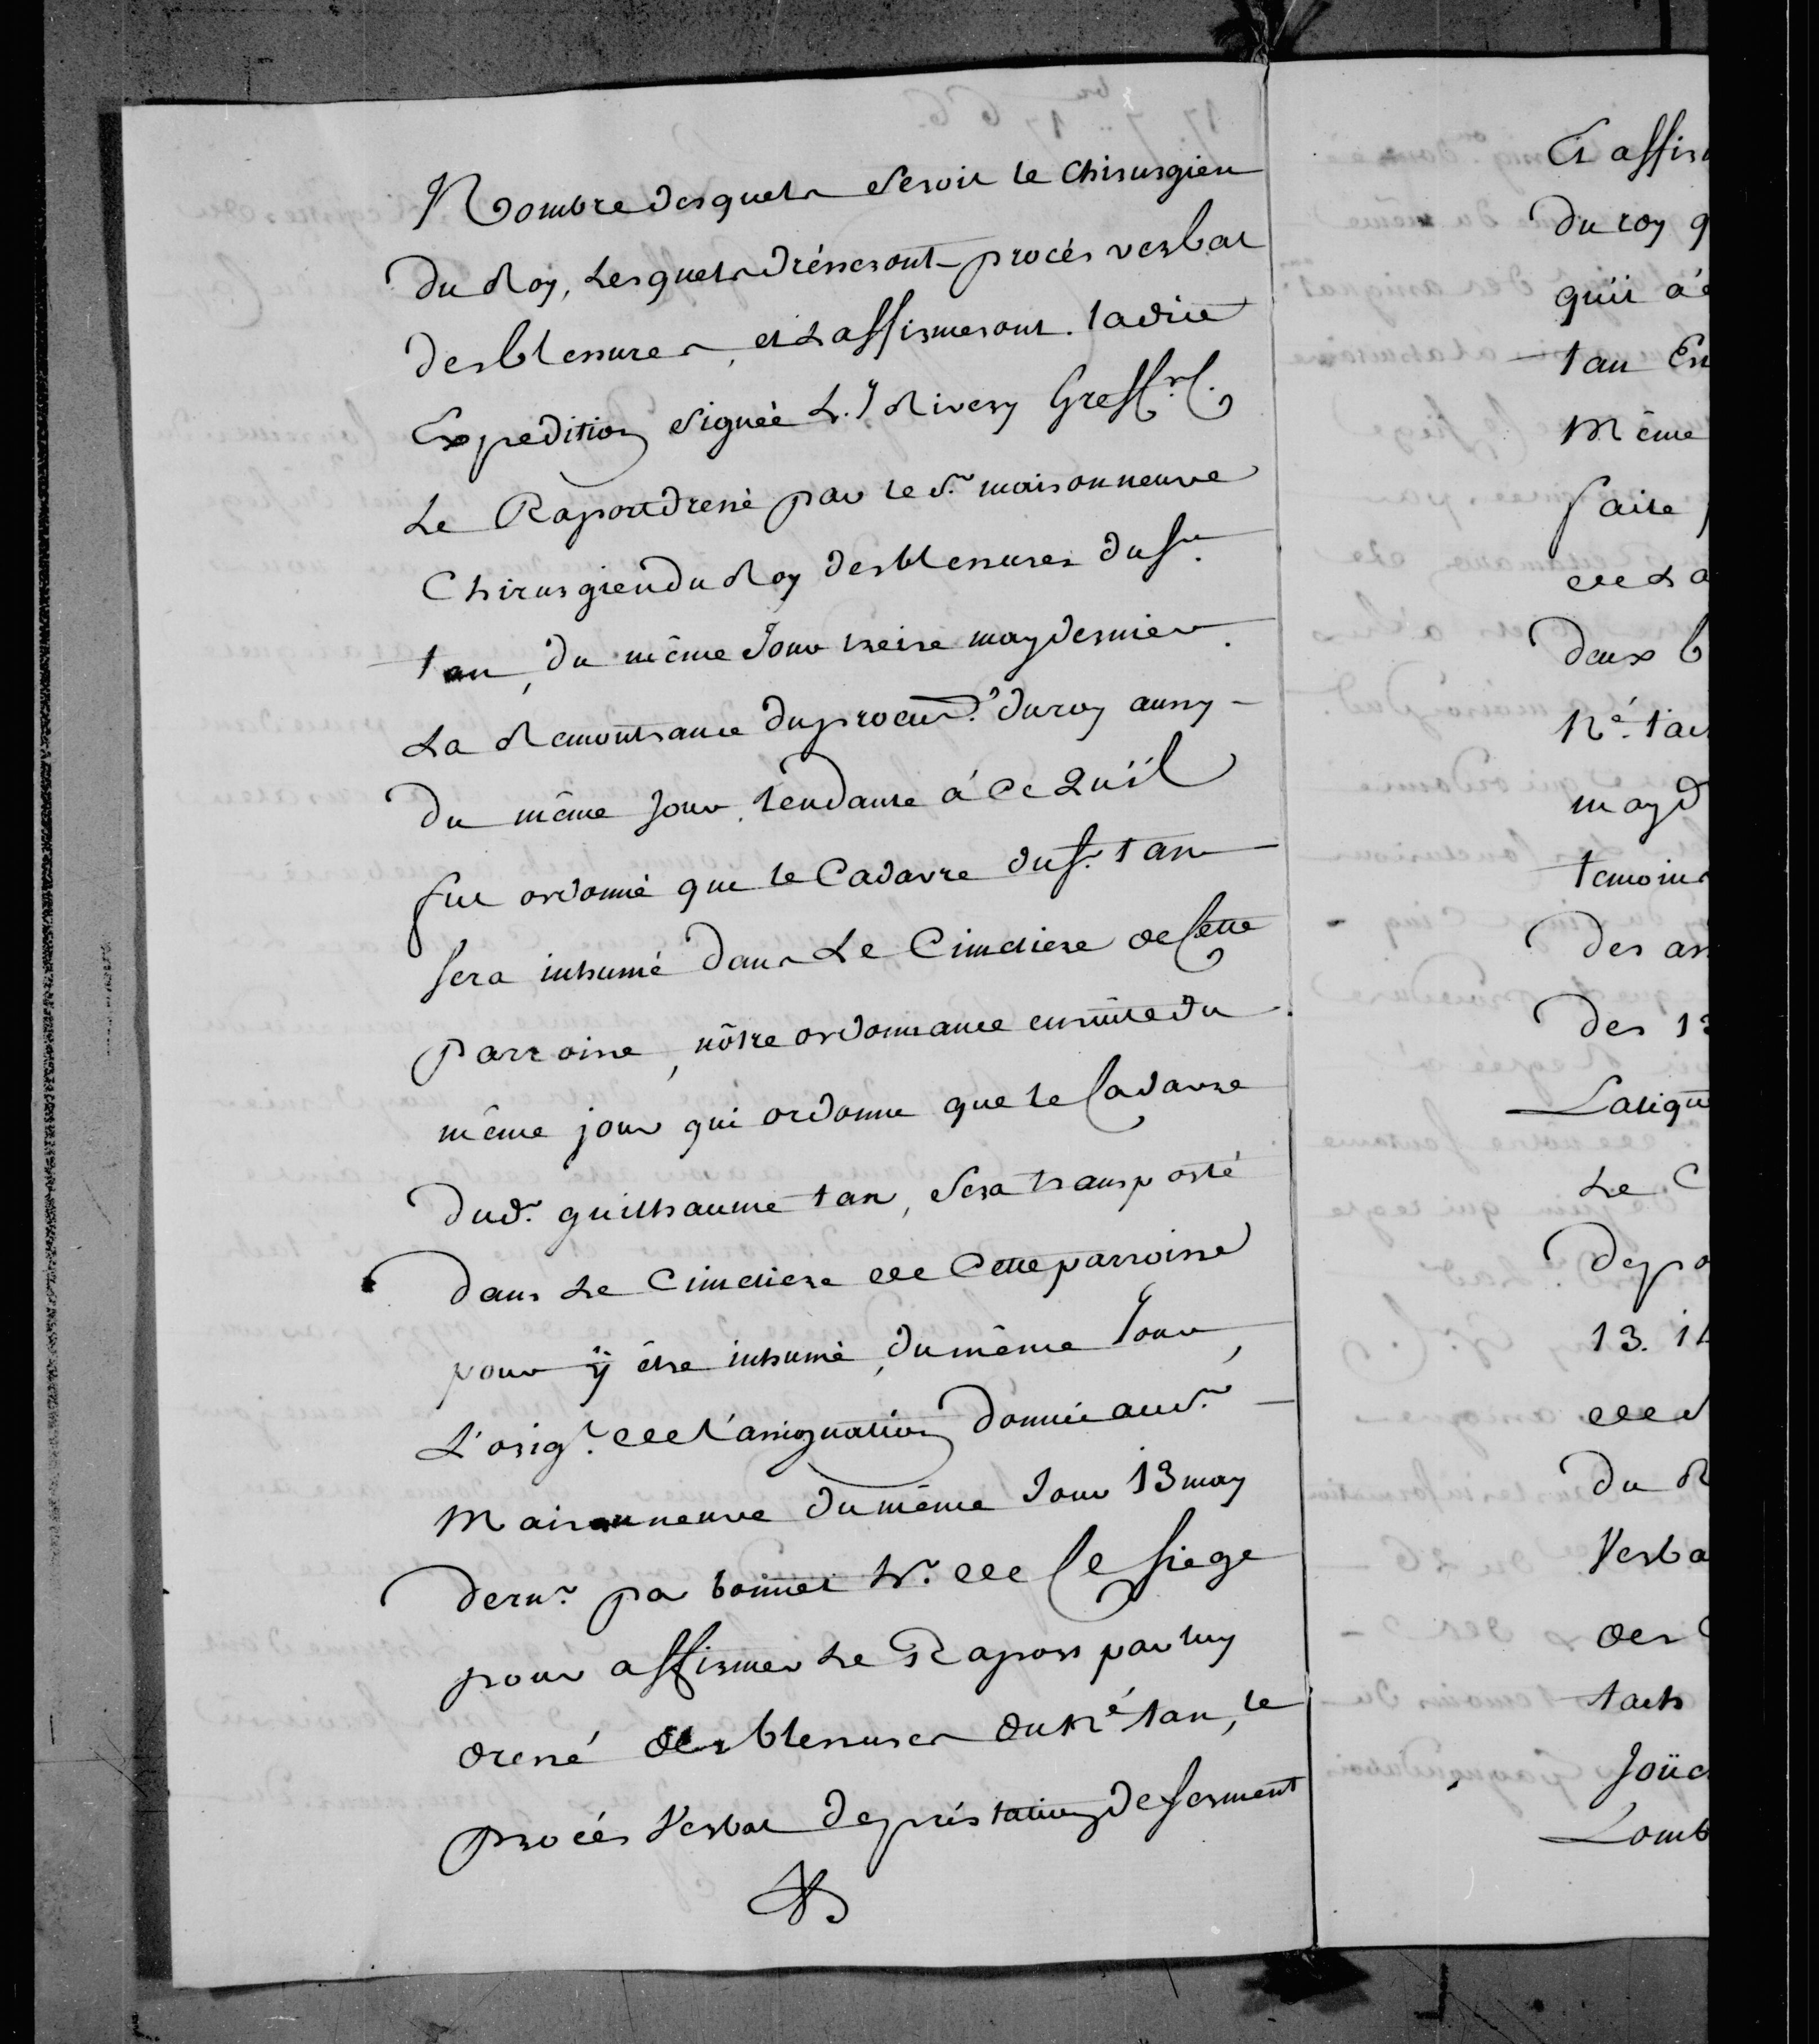 Nombre desquels seroit le chirurgien
du Roy, Lesquels drésseront procés verbal
des blessures, et L'affirmeront. ladite
Expedition signée L. J Rivery Greff.
Le Raport dressé par le Sr. maisonneuve
Chirurgien du Roy des blessures du Sr.
tan, du même Jour treize may dernier.
La Remontrance du procur. du roy aussy
du même jour, tendante á Ce Qu'il
fut ordonné que le Cadavre du Sr. tan
sera inhumé dans Le Cimetiere de Cette
parroisse, nôtre ordonnance ensuite du
même jour qui ordonne que le Cadavre
dud. guilhaume tan, sera transporté
dans Le Cimetiere de Cette parroisse
pour ÿ être inhumé, du même Jour,
L'orig. de L'assignation donnée au Sr.
Maisonneuve du même Jour 13 may
dernr. par bonnet hr. de Ce siege
pour affirmer Le Raport par luy
dressé des blessures du né. tan, le
procés verbal de préstation de serment
Et affir
du roy q
qu'il a
tan En
Même
faite
de La
deux b
né. tan
may d
temoins
des as
des 13
Le C
depo
13. 14
du R
Verba
des
tach
Joüe
Lomb